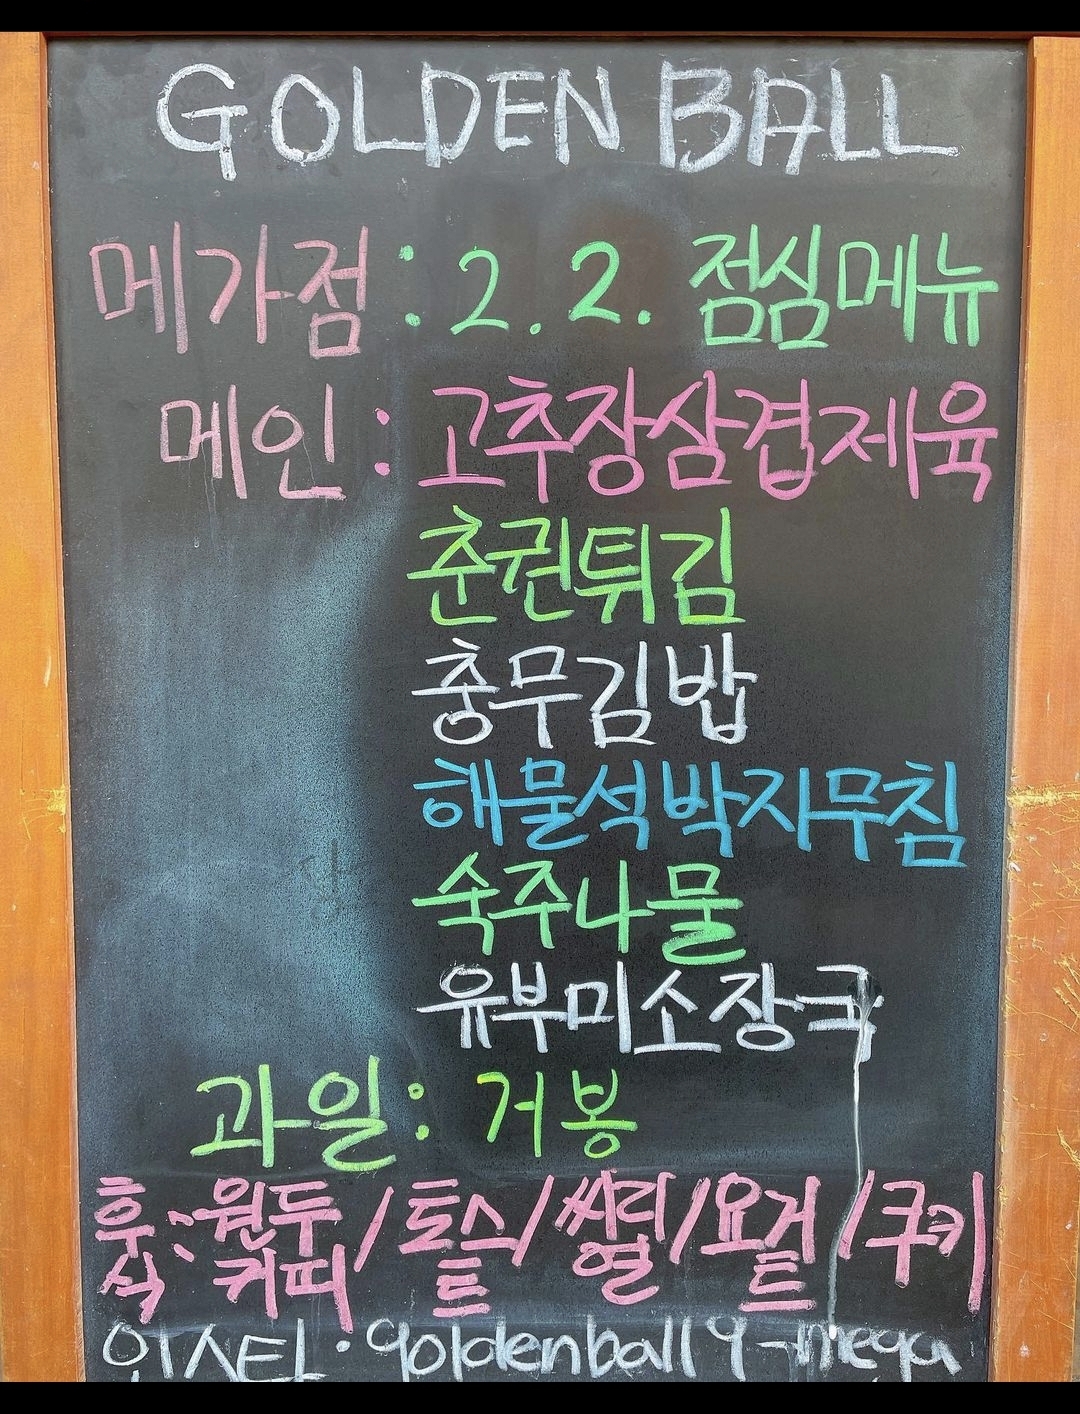 GOLDEN BALL
메가점 : 2.2. 점심메뉴
메인 : 고추장삼겹제육
춘권튀김
충무김밥
해물석박지무침
숙주나물
유부미소장국
과일 : 거봉
후식 : 원두커피 / 토스트 / 씨리얼 / 요거트 / 쿠키
인스타 : goldenball9-mega